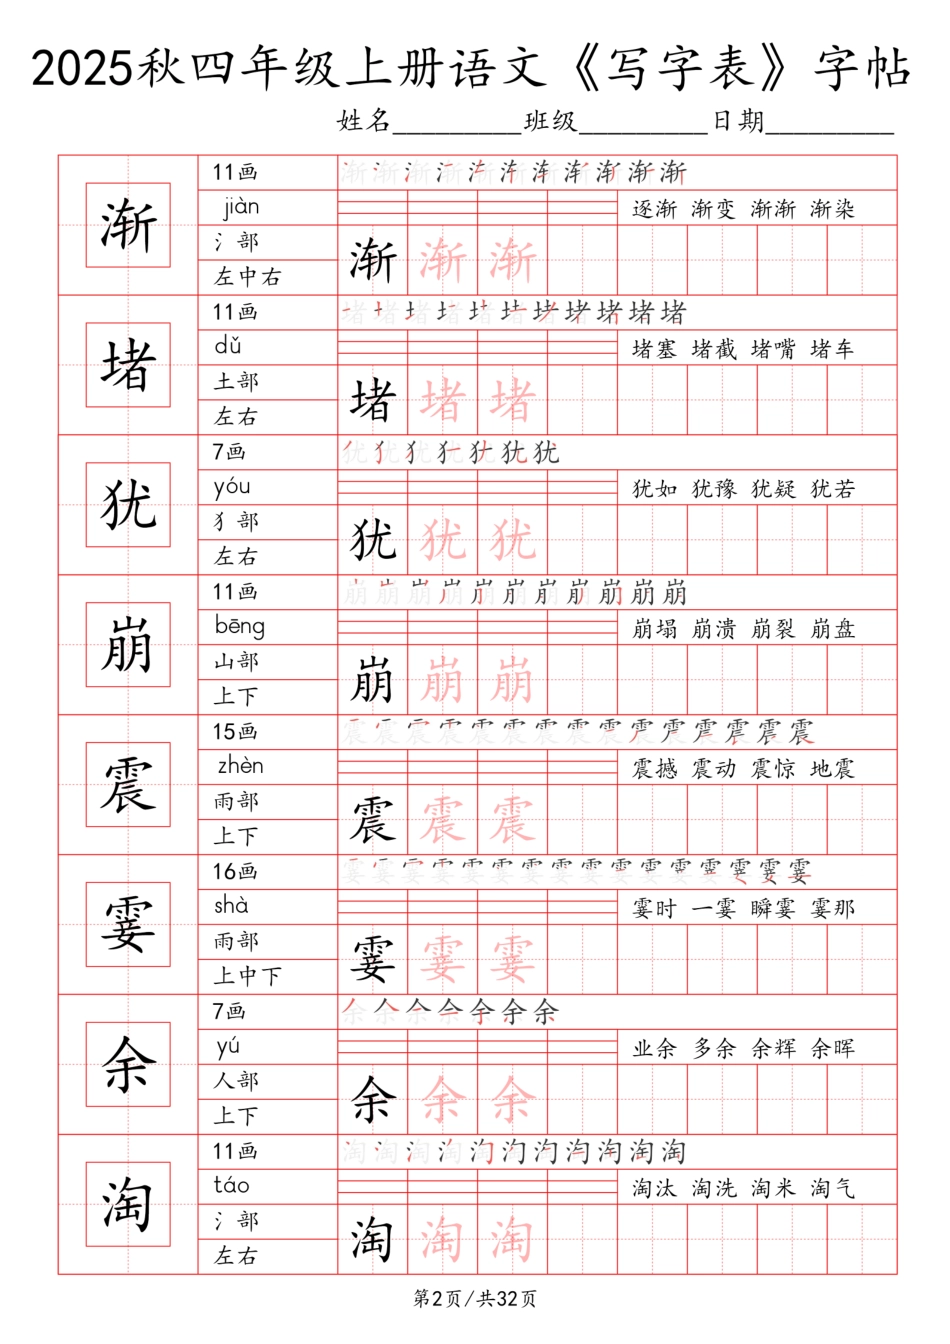 2025秋四年级上册语文《写字表》字帖
姓名_________班级_________日期_________
渐
11画
渐渐渐渐渐渐渐渐渐渐渐
jiàn
逐渐 渐变 渐渐 渐染
氵部
左中右
渐渐渐
堵
11画
堵堵堵堵堵堵堵堵堵堵堵
dǔ
堵塞 堵截 堵嘴 堵车
土部
左右
堵堵堵
犹
7画
犹犹犹犹犹犹犹
yóu
犹如 犹豫 犹疑 犹若
犭部
左右
犹犹犹
崩
11画
崩崩崩崩崩崩崩崩崩崩崩
bēng
崩塌 崩溃 崩裂 崩盘
山部
上下
崩崩崩
震
15画
震震震震震震震震震震震震震震震
zhèn
震撼 震动 震惊 地震
雨部
上下
震震震
霎
16画
霎霎霎霎霎霎霎霎霎霎霎霎霎霎霎霎
shà
霎时 一霎 瞬霎 霎那
雨部
上中下
霎霎霎
余
7画
余余余余余余余
yú
业余 多余 余辉 余晖
人部
上下
余余余
淘
11画
淘淘淘淘淘淘淘淘淘淘淘
táo
淘汰 淘洗 淘米 淘气
氵部
左右
淘淘淘
第2页/共32页